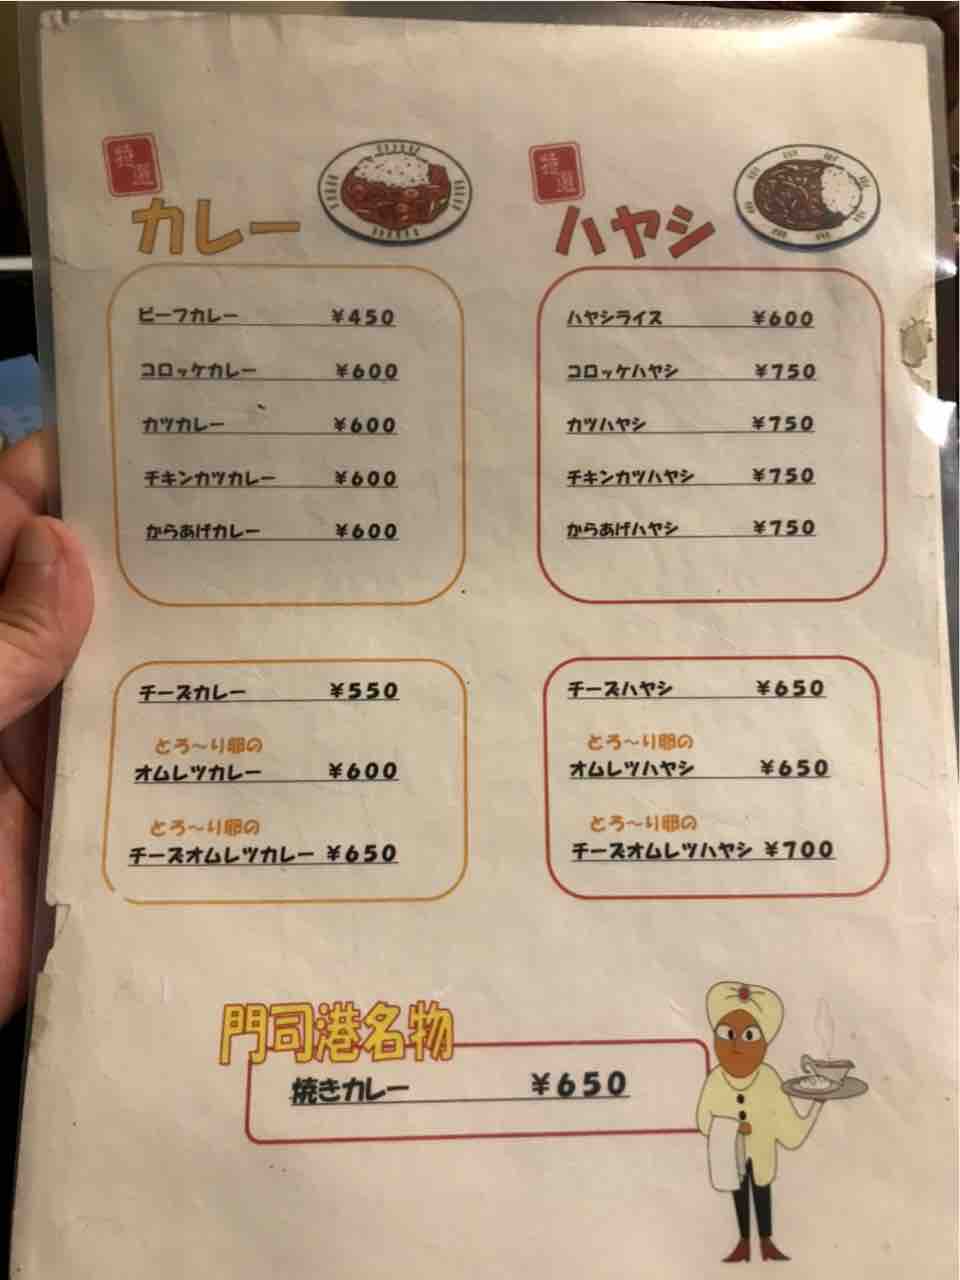 特選
カレー
ビーフカレー ¥450
コロッケカレー ¥600
カツカレー ¥600
チキンカツカレー ¥600
からあげカレー ¥600
チーズカレー ¥550
とろ〜り卵の
オムレツカレー ¥600
とろ〜り卵の
チーズオムレツカレー ¥650
特選
ハヤシ
ハヤシライス ¥600
コロッケハヤシ ¥750
カツハヤシ ¥750
チキンカツハヤシ ¥750
からあげハヤシ ¥750
チーズハヤシ ¥650
とろ〜り卵の
オムレツハヤシ ¥650
とろ〜り卵の
チーズオムレツハヤシ ¥700
門司港名物
焼きカレー ¥650